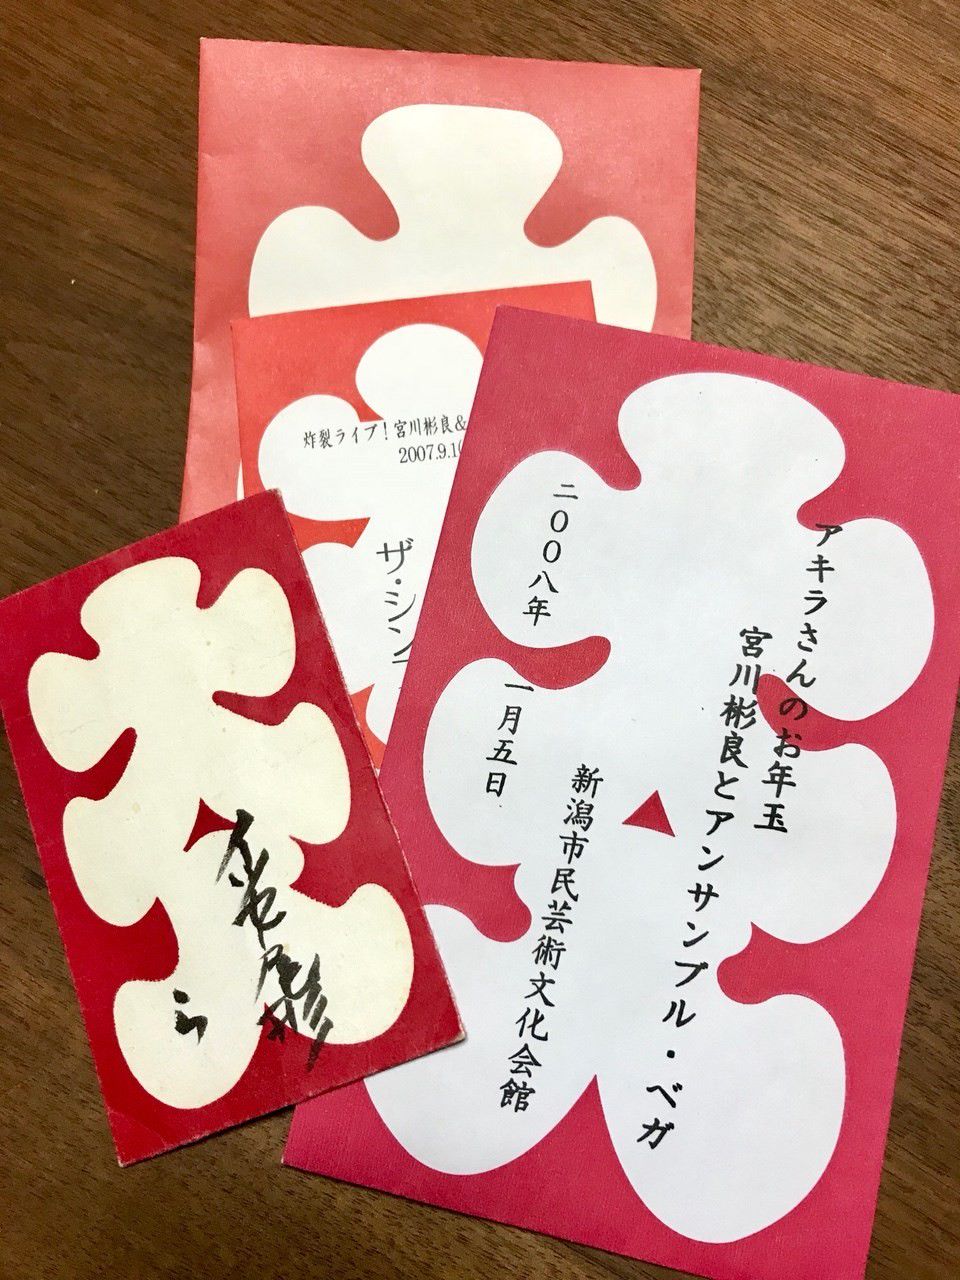 アキラさんのお年玉
宮川彬良とアンサンブル・ベガ
新潟市民芸術文化会館
二〇〇八年
一月五日
炸裂ライブ！宮川彬良＆
2007.9.1
ザ・シン